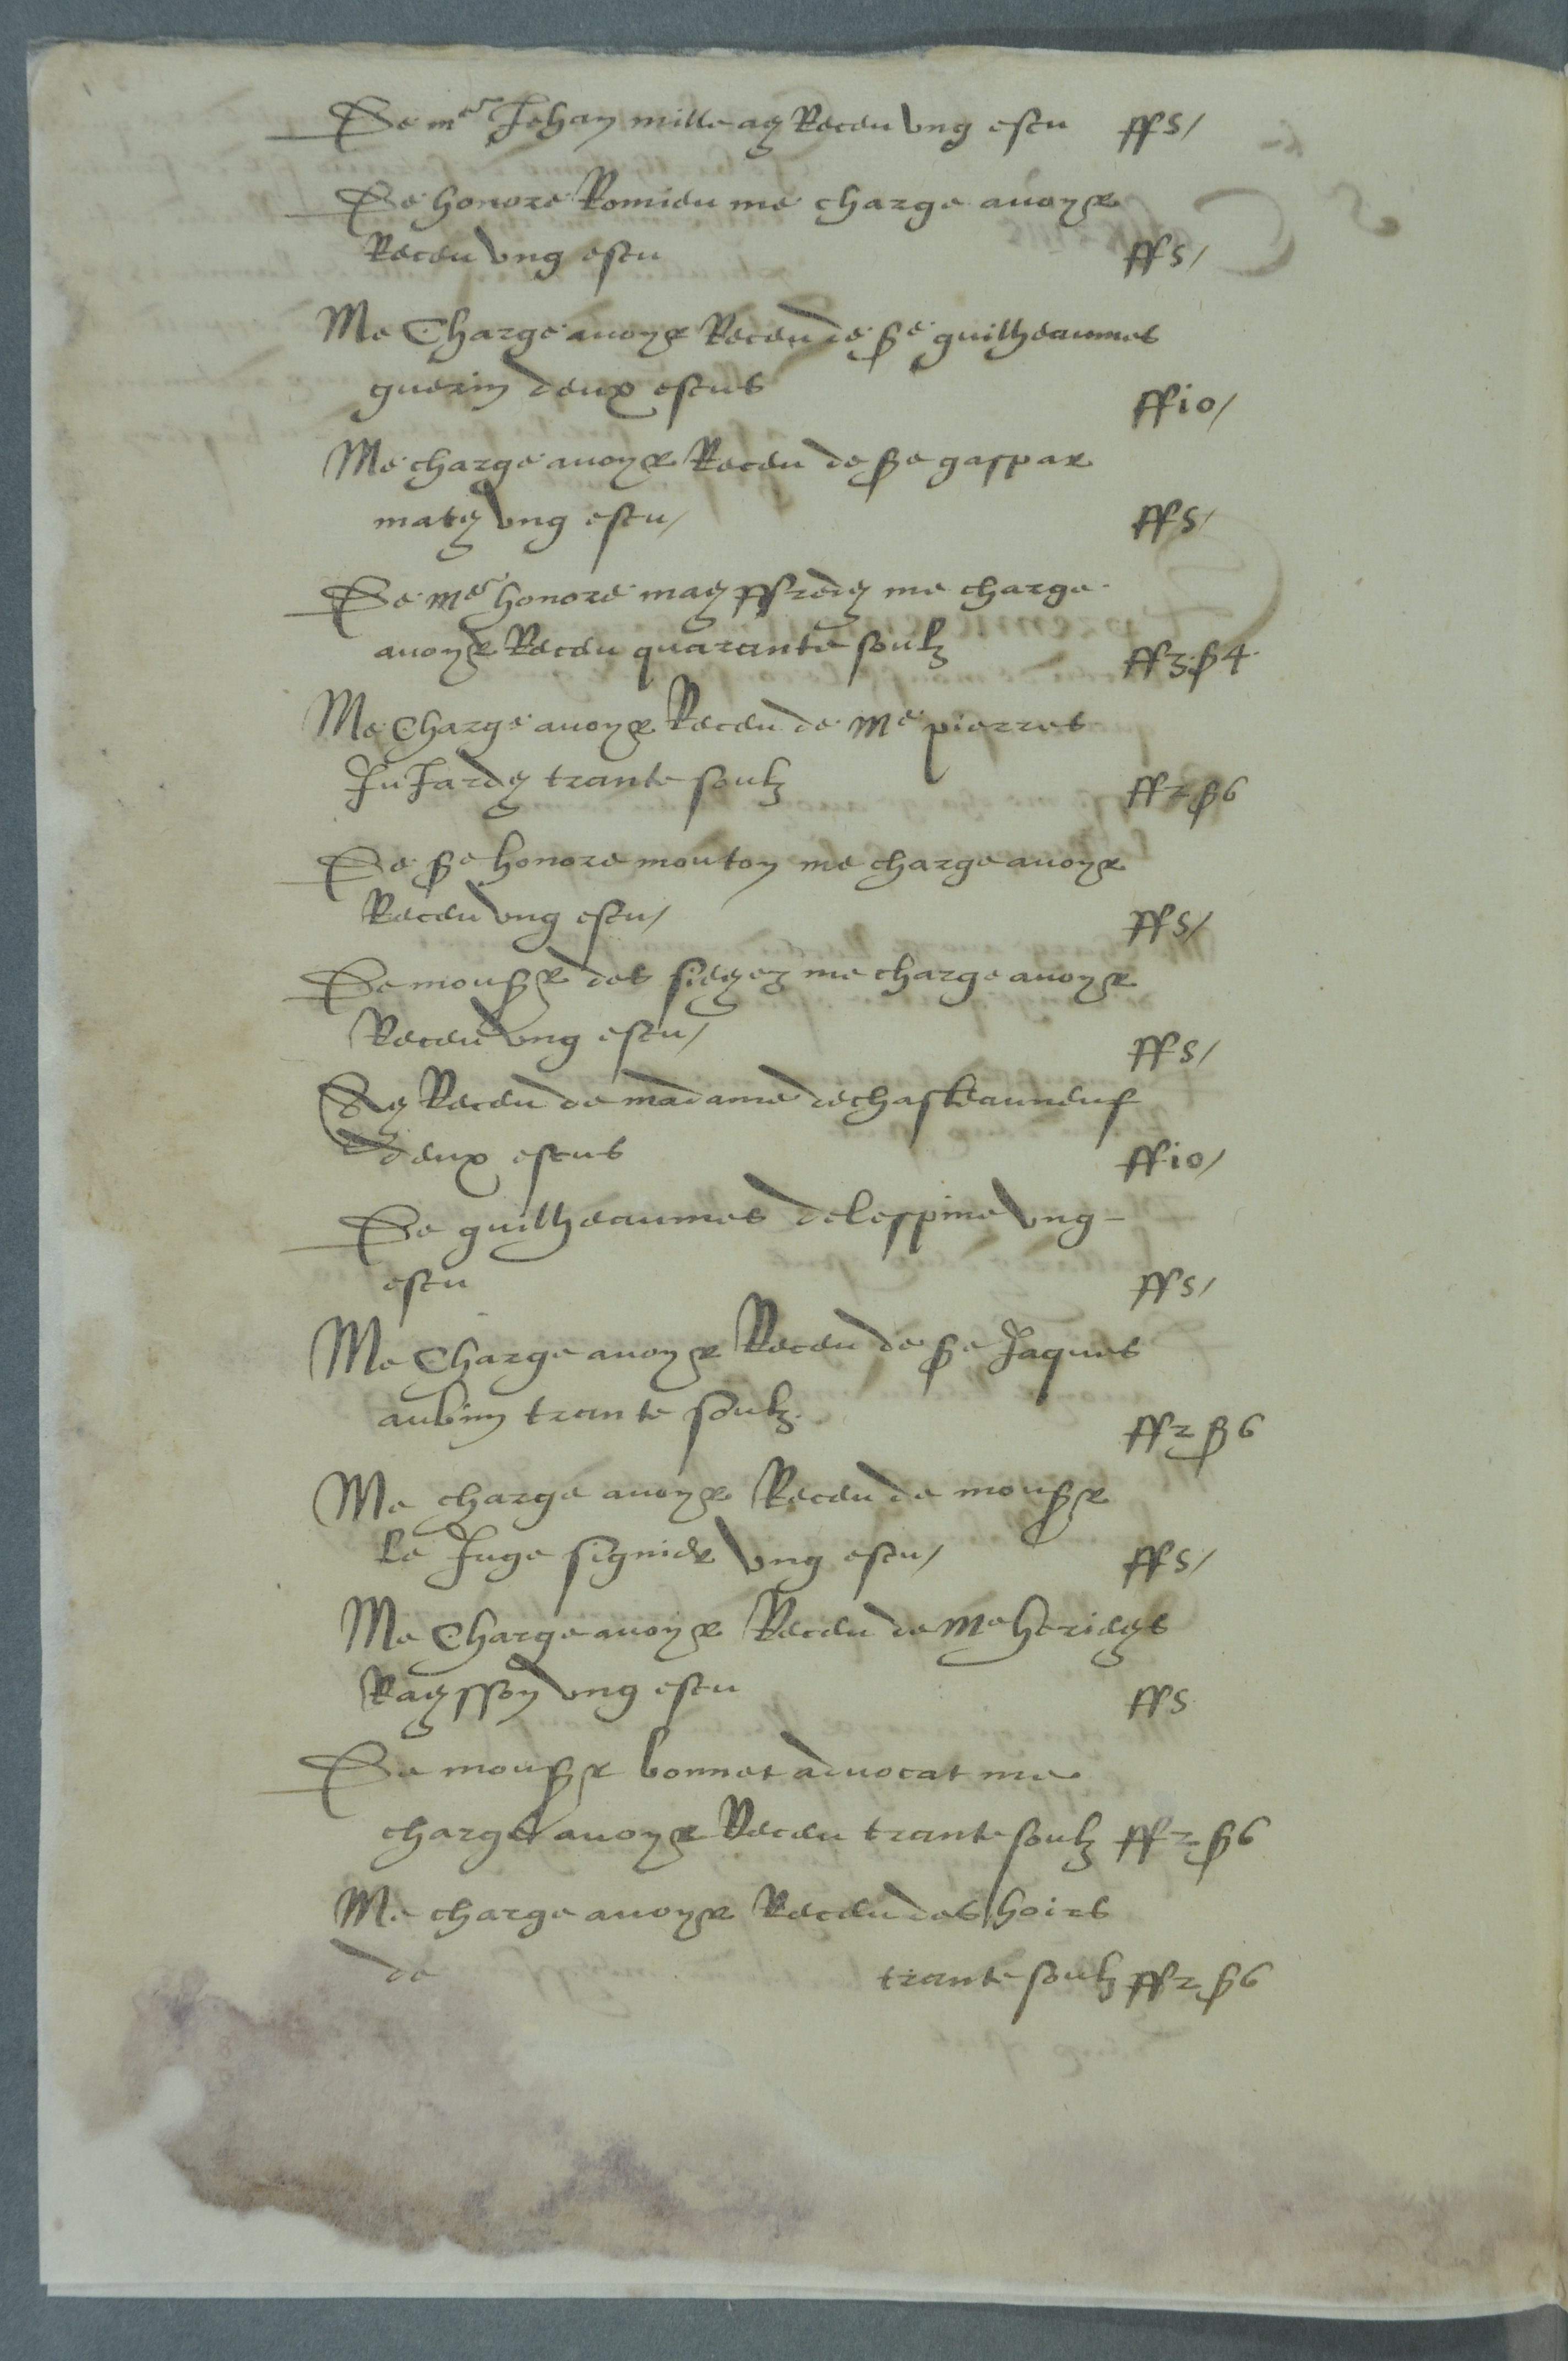 De mᵉ Jehan mille ay Receu vng escu ff 5/
De honore Romieu me charge avoyr
Receu vng escu ff 5/
Me Charge avoyr Receu de sᵉ guilheaumes
guerin deux escus ff 10/
Me charge avoyr Receu de sᵉ gaspar
maty vng escu/ ff 5/
De mᵉ honore mayffredy me charge
avoyr Receu quarante soulz ff 3 s 4
Me Charge avoyr Receu de Mᵉ pierres
JuJardy trante soulz ff 2 s 6
De sᵉ honore mouton me charge avoyr
Receu vng escu/ ff 5/
De monsr des sieyez me charge avoyr
Receu vng escu/ ff 5/
Ay Receu de madame de chasteauneuf
deux escus ff 10/
De guilheaumes delespine vng -
escu ff 5/
Me Charge avoyr Receu de sᵉ Jaques
aubin trante soulz ff 2 s 6
Me charge avoyr Receu de monsr
le Juge signier vng escu/ ff 5/
Me Charge avoyr Receu de Mᵉ
Raysson vng escu ff 5
De monsr bonnet advocat me
charge avoyr Receu trante soulz ff 2 s 6
Me charge avoyr Receu des hoirs
de trante soulz ff 2 s 6